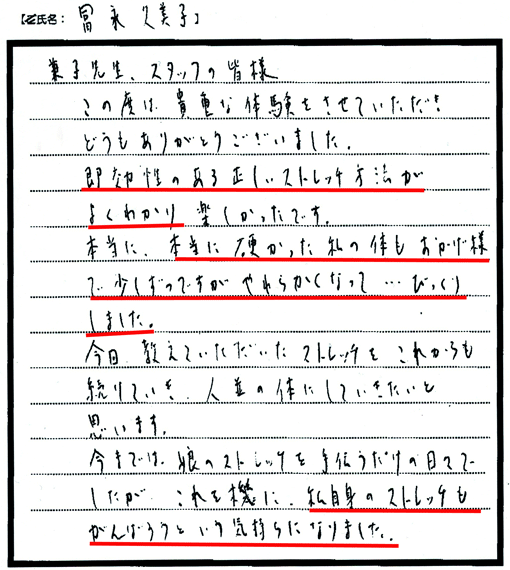 【ご氏名： 冨永久美子】
菓子先生、スタッフの皆様
この度は貴重な体験をさせていただき
どうもありがとうございました。
即効性のある正しいストレッチ方法が
よくわかり 楽しかったです。
本当に、本当に硬かった私の体もおかげ様
で少しずつですがやわらかくなって…びっくり
しました。
今日、教えていただいたストレッチをこれからも
続けていき、人並の体にしていきたいと
思います。
今までは、娘のストレッチを手伝うだけの日々で
したが これを機に、私自身のストレッチも
がんばろうという気持ちになりました。